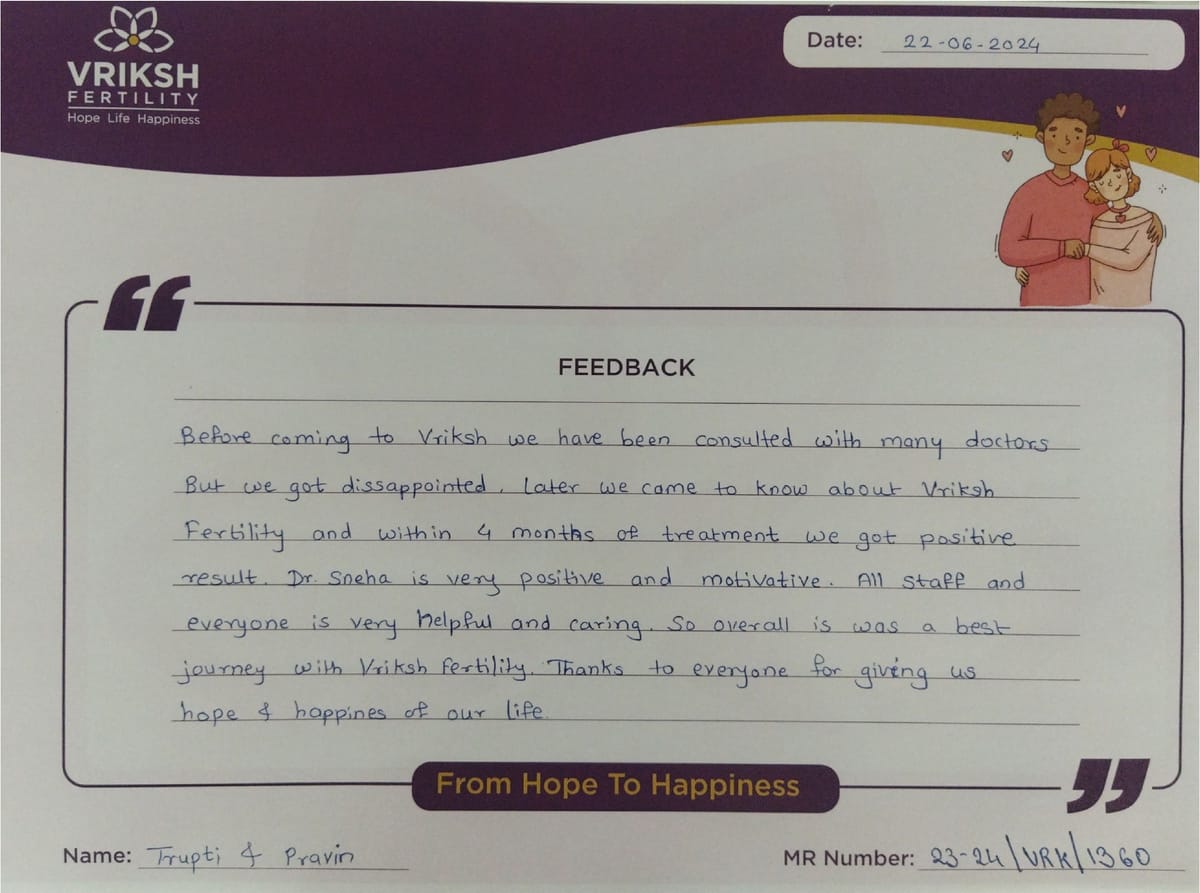 VRIKSH
FERTILITY
Hope Life Happiness
Date: 22-06-2024
FEEDBACK
Before coming to Vriksh we have been consulted with many doctors
But we got dissappointed. Later we came to know about Vriksh
Fertility and within 4 months of treatment we got positive
result. Dr. Sneha is very positive and motivative. All staff and
everyone is very helpful and caring. So overall is was a best
journey with Vriksh fertility. Thanks to everyone for giving us
hope & happines of our life.
From Hope To Happiness
Name: Trupti & Pravin
MR Number: 23-24/VRK/1360